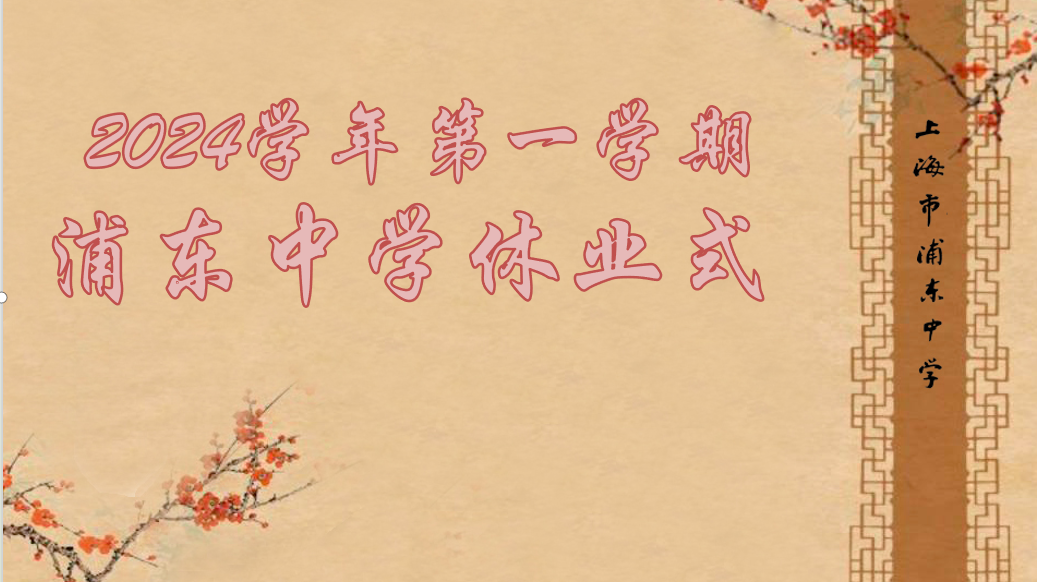 2024学年第一学期
浦东中学休业式
上海市浦东中学